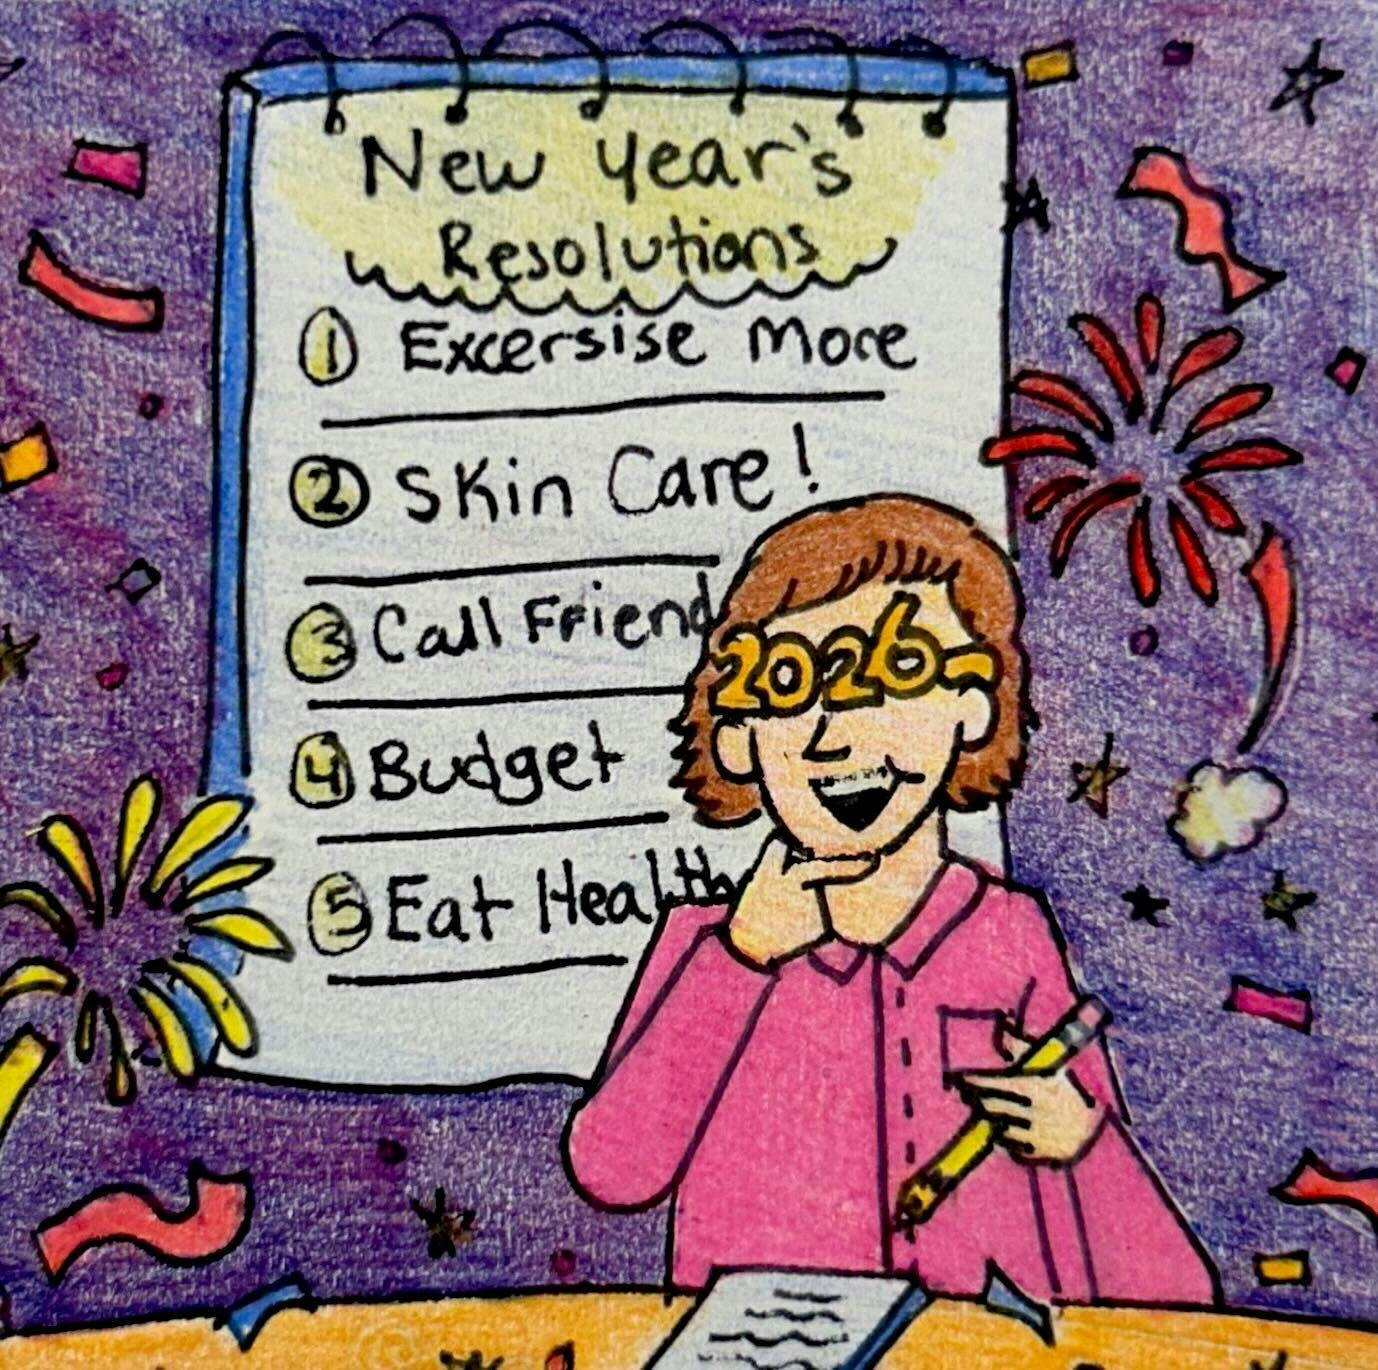 New Year's
Resolutions
1 Excersise More
2 Skin Care!
3 Call Friend
4 Budget
5 Eat Health
2026